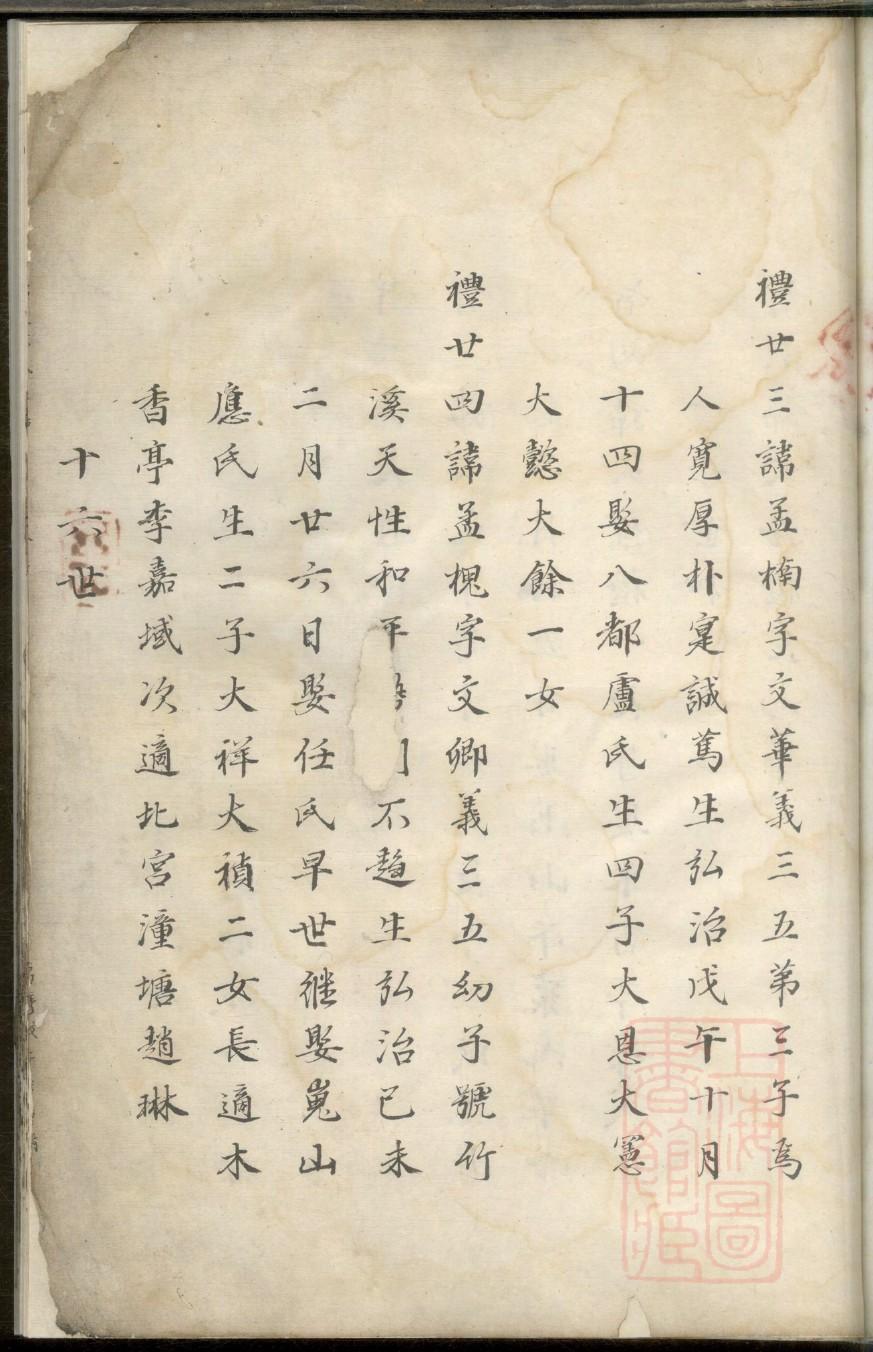 禮廿三諱孟楠字文華義三五第三子為
人寬厚朴寔誠篤生弘治戊午十月
十四娶八都盧氏生四子大恩大憲
大懿大餘一女
禮廿四諱孟槐字文卿義三五幼子號竹
溪天性和平不趨生弘治己未
二月廿六日娶任氏早世継娶嵬山
應氏生二子大祥大禎二女長適木
香亭李嘉域次適北宮潼塘趙琳
十六世
上海圖書館藏